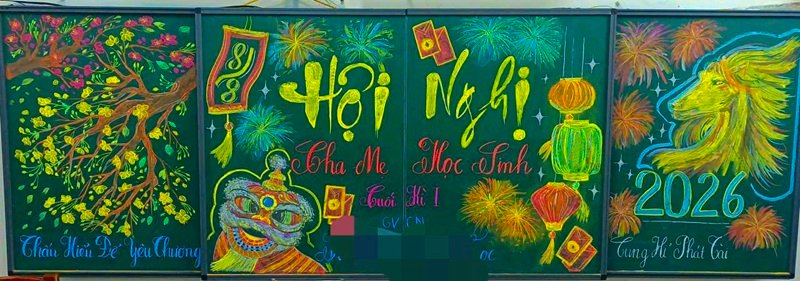 8/8
Hội Nghị
Cha Mẹ Học Sinh
Cuối Kì I
GVCN
2026
Thấu Hiểu Để Yêu Thương
Cung Hỉ Phát Tài